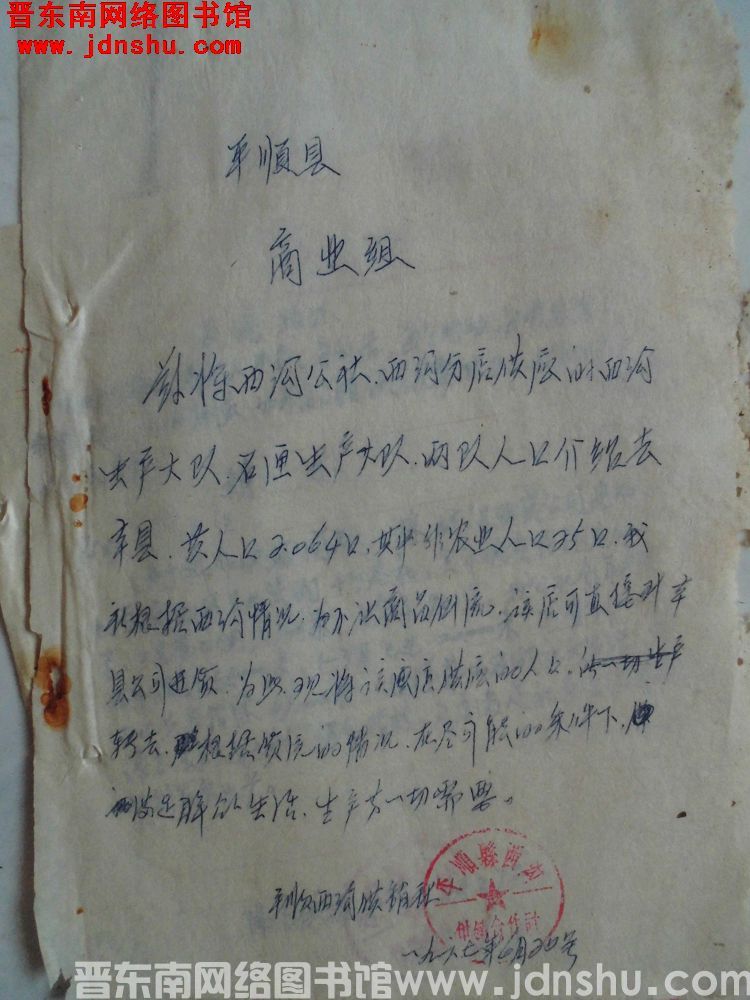 晋东南网络图书馆
www.jdnshu.com
平顺县
商业组
兹将西沟公社、西沟分店供应的西沟
生产大队、石匣生产大队、两队人口介绍去
贵县、共人口2.064口,其中非农业人口25口,我
社根据西沟情况,为不让商品倒流,该店可直接对
县公司进货,为此,现将该店供应的人口,
转去,根据货源的情况、在尽可能的条件下,
满足群众生活、生产一切需要。
平顺西沟供销社
平顺县西沟
供销合作社
一九六七年 月20号
晋东南网络图书馆 www.jdnshu.com